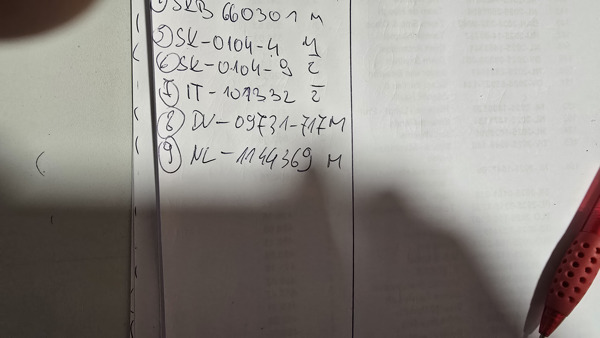 SRB 660301 M
5 SK-0104-4 M
6 SK-0104-9 Ž
7 IT-107332 Ž
8 DV-09731-717 M
9 NL-1144369 M